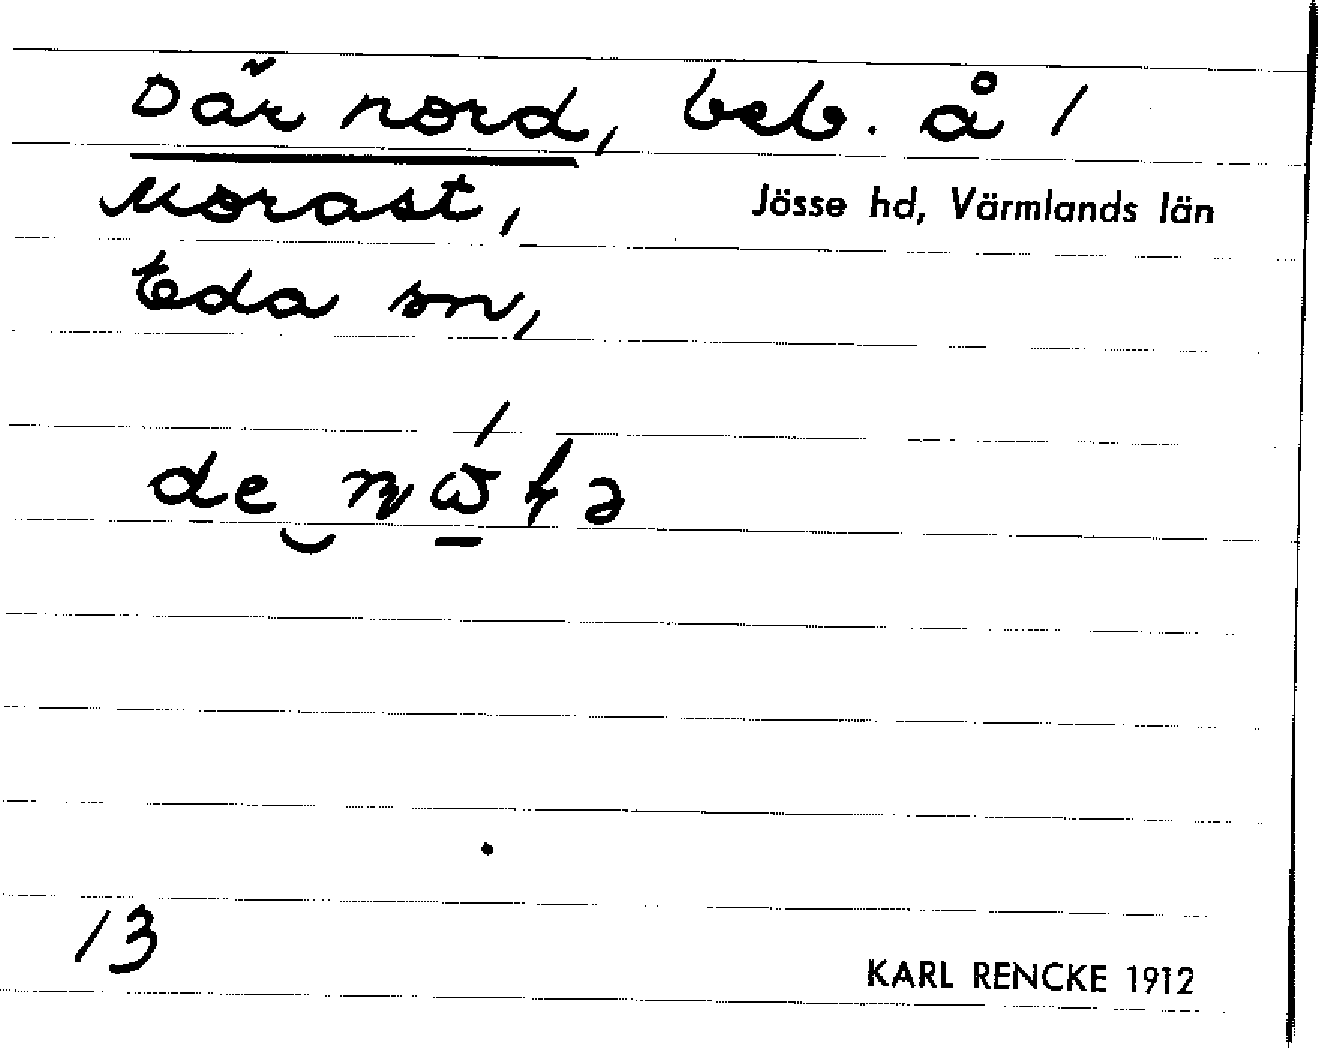 Där nord, beb. å /
Morast, Jösse hd, Värmlands län
Eda sn,
de
13
KARL RENCKE 1912